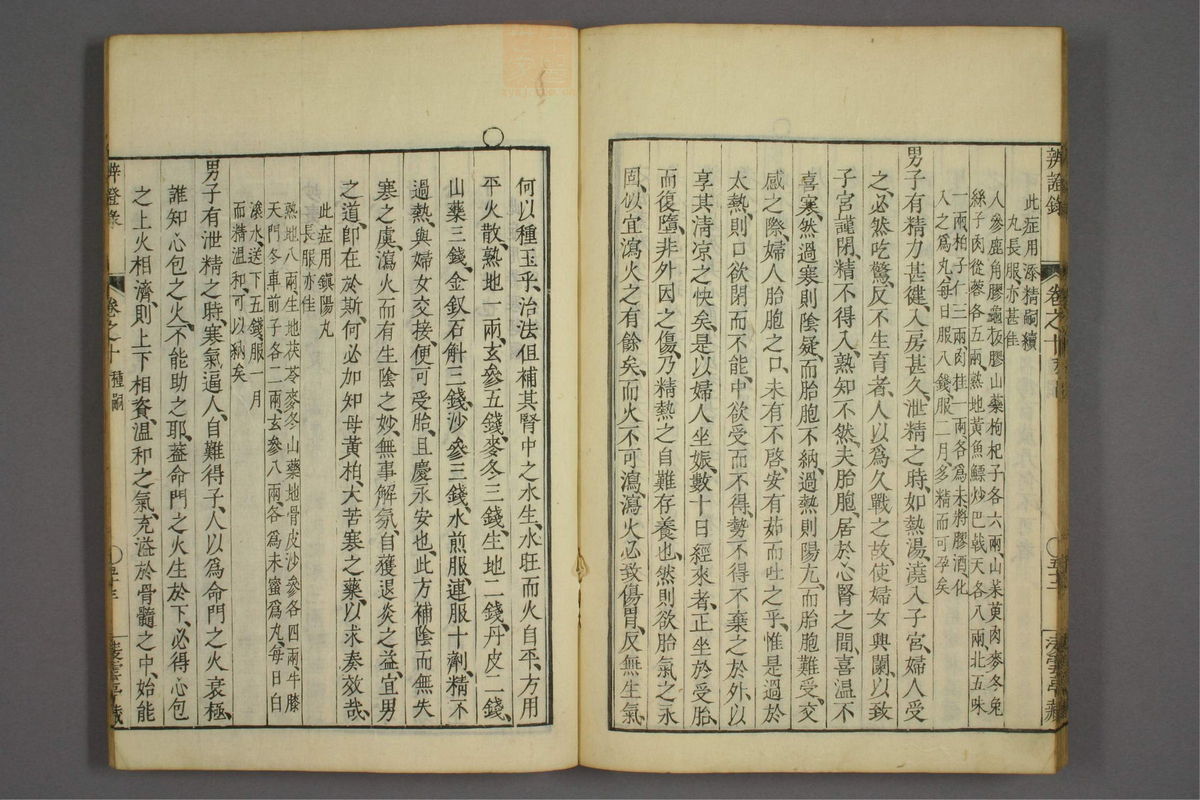 辨證錄
卷之十
凌雲亭藏
此症用添精嗣續
丸長服亦甚佳
人參鹿角膠龜板膠山藥枸杞子各六兩山茱萸肉麥冬兔
絲子肉從蓉各五兩熟地黃魚鰾炒巴戟天各八兩北五味
一兩柏子仁三兩肉桂一兩各爲末將膠酒化
入之爲丸每日服八錢服二月多精而可孕矣
男子有精力甚健入房甚久泄精之時如熱湯澆入子宮婦人受
之必然吃驚反不生育者人以爲久戰之故使婦女興闌以致
子宮謹閉精不得入孰知不然夫胎胞居於心腎之間喜溫不
喜寒然過寒則陰凝而胎胞不納過熱則陽亢而胎胞難受交
感之際婦人胎胞之口未有不啓安有茹而吐之乎惟是過於
太熱則口欲閉而不能中欲受而不得勢不得不棄之於外以
享其清凉之快矣是以婦人坐娠數十日經來者正坐於受胎
而復墮非外因之傷乃精熱之自難存養也然則欲胎氣之永
固似宜瀉火之有餘矣而火不可瀉瀉火必致傷胃反無生氣
何以種玉乎治法但補其腎中之水生水旺而火自平方用
平火散熟地一兩玄參五錢麥冬三錢生地二錢丹皮二錢
山藥三錢金釵石斛三錢沙參三錢水煎服連服十劑精不
過熱與婦女交接便可受胎且慶永安也此方補陰而無失
寒之虞瀉火而有生陰之妙無事解氛自獲退炎之益宜男
之道卽在於斯何必加知母黃柏大苦寒之藥以求奏效哉
此症用鎮陽丸
長服亦佳
熟地八兩生地茯苓麥冬山藥地骨皮沙參各四兩牛膝
天門冬車前子各二兩玄參八兩各爲末蜜爲丸每日白
滾水送下五錢服一月
而精溫和可以納矣
男子有泄精之時寒氣逼人自難得子人以爲命門之火衰極
誰知心包之火不能助之耶蓋命門之火生於下必得心包
之上火相濟則上下相資溫和之氣充溢於骨髓之中始能
辨證錄
卷之十
種嗣
凌雲亭藏